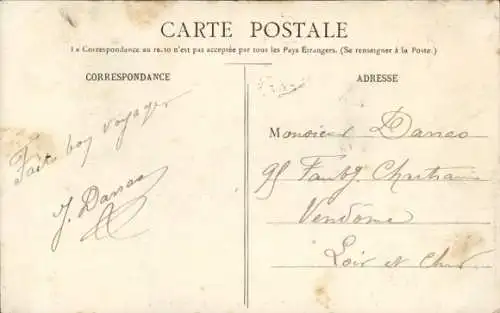 CARTE POSTALE
La Correspondance au recto n'est pas acceptée par tous les Pays Étrangers. (Se renseigner à la Poste.)
CORRESPONDANCE
Fait bon voyager
J. Danas
ADRESSE
Monsieur Danas
95 Faubg Chartrain
Vendôme
Loir et Cher